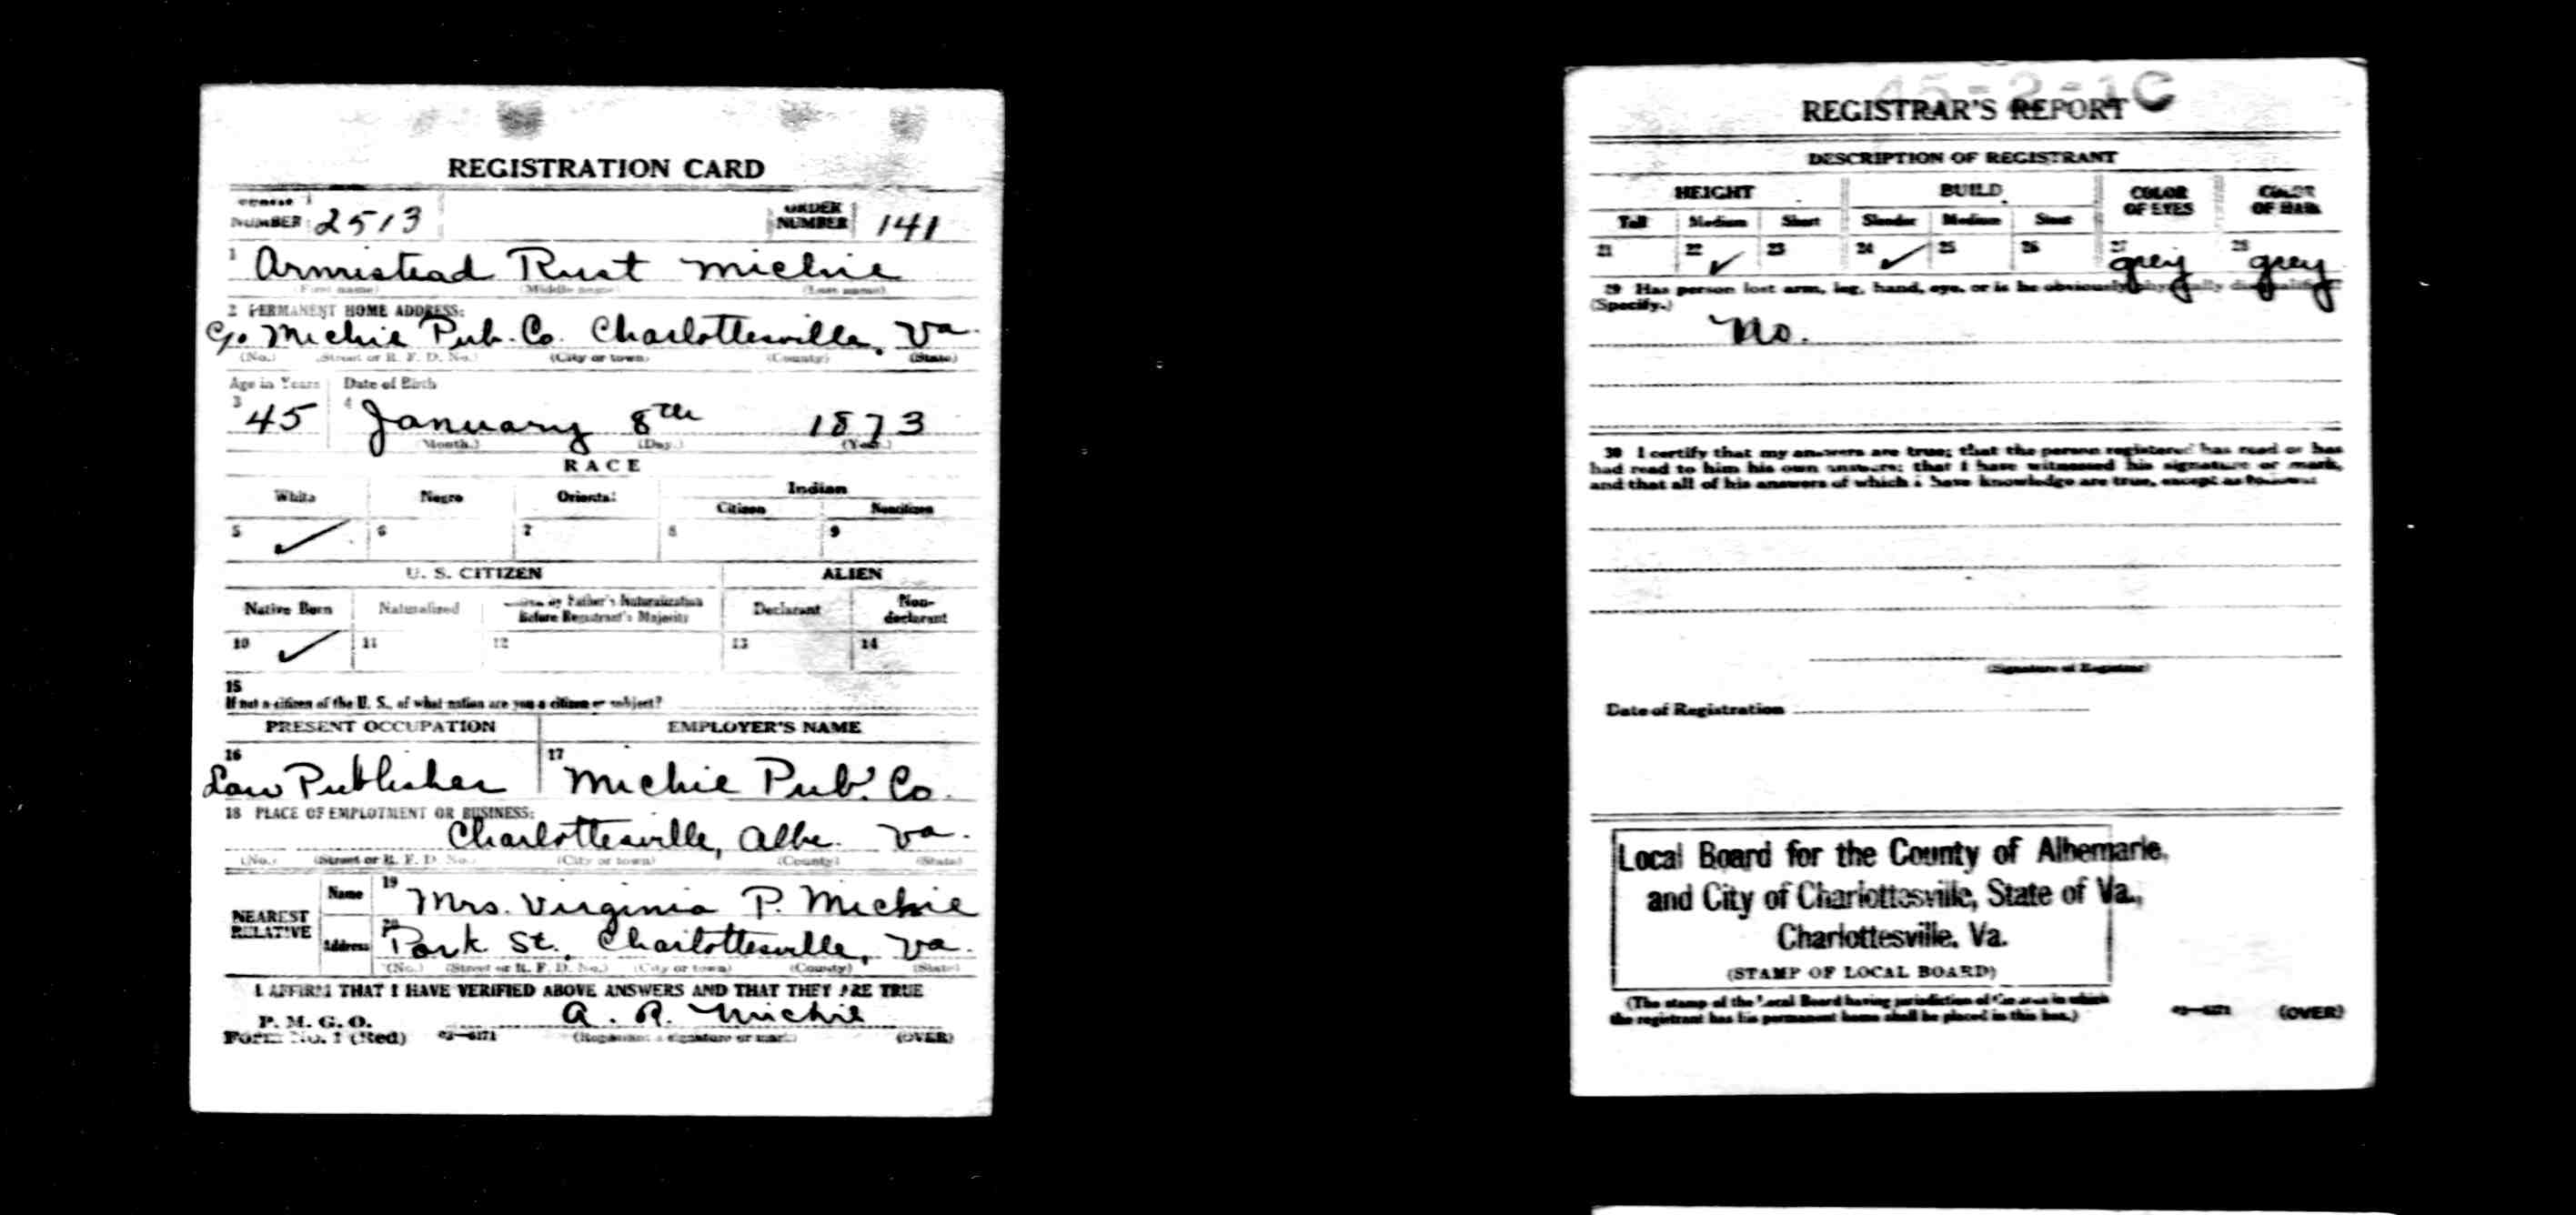 REGISTRATION CARD
NUMBER 2513 ORDER NUMBER 141
1 Armistead Rust Michie
(First name) (Middle name) (Last name)
2 PERMANENT HOME ADDRESS:
c/o Michie Pub. Co. Charlottesville, Va.
(No.) (Street or R. F. D. No.) (City or town) (County) (State)
Age in Years Date of Birth
3 45 4 January 8th 1873
(Month.) (Day.) (Year.)
RACE
White Negro Oriental Indian
Citizen Noncitizen
5 ✓ 6 7 8 9
U. S. CITIZEN ALIEN
Native Born Naturalized by Father's Naturalization Before Registrant's Majority Declarant Non-declarant
10 ✓ 11 12 13 14
15
If not a citizen of the U. S., of what nation are you a citizen or subject?
PRESENT OCCUPATION EMPLOYER'S NAME
16 Law Publisher 17 Michie Pub. Co.
18 PLACE OF EMPLOYMENT OR BUSINESS:
Charlottesville, Albe. Va.
(No.) (Street or R. F. D. No.) (City or town) (County) (State)
NEAREST RELATIVE Name 19 Mrs. Virginia P. Michie
Address 20 Park St., Charlottesville, Va.
(No.) (Street or R. F. D. No.) (City or town) (County) (State)
I AFFIRM THAT I HAVE VERIFIED ABOVE ANSWERS AND THAT THEY ARE TRUE
P. M. G. O.
Form No. 1 (Red) A. R. Michie
(Registrant's signature or mark) (OVER)
45-2-1 C
REGISTRAR'S REPORT
DESCRIPTION OF REGISTRANT
HEIGHT BUILD COLOR OF EYES COLOR OF HAIR
Tall Medium Short Slender Medium Stout
21 22 ✓ 23 24 ✓ 25 26 27 grey 28 grey
29 Has person lost arm, leg, hand, eye, or is he obviously physically disqualified?
(Specify.)
No.
30 I certify that my answers are true; that the person registered has read or has
had read to him his own answers; that I have witnessed his signature or mark,
and that all of his answers of which I have knowledge are true, except as follows:
(Signature of Registrar)
Date of Registration
Local Board for the County of Albemarle,
and City of Charlottesville, State of Va.,
Charlottesville, Va.
(STAMP OF LOCAL BOARD)
(The stamp of the Local Board having jurisdiction of the area in which
the registrant has his permanent home shall be placed in this box.) (OVER)